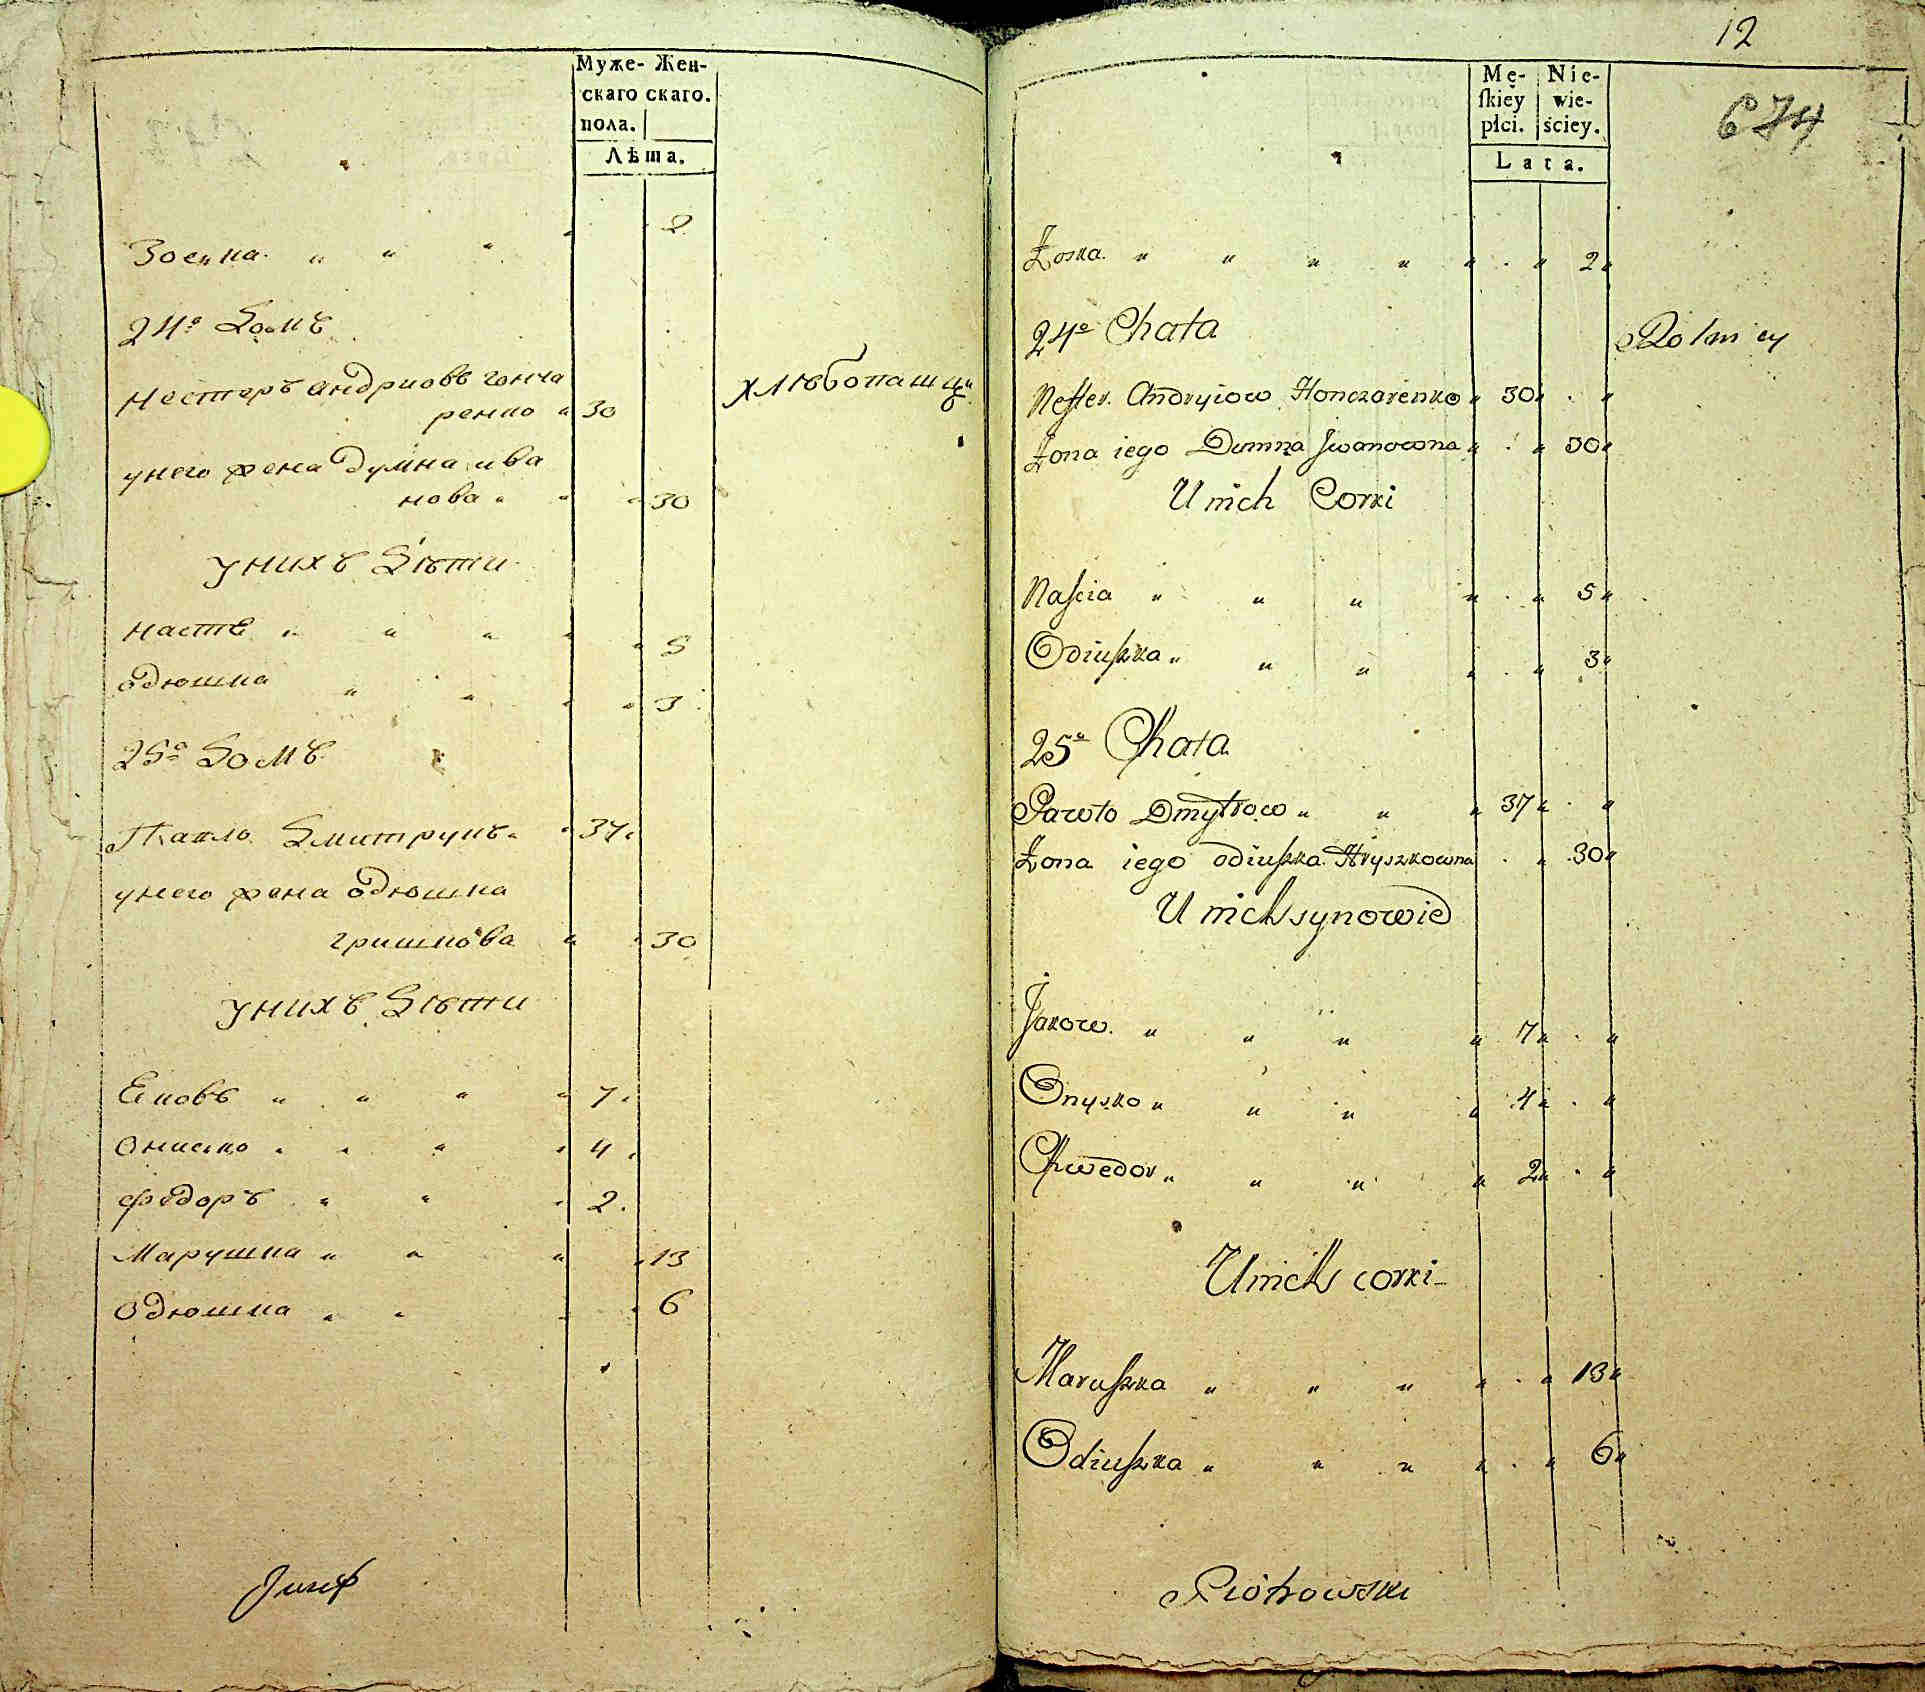 Муже- Жен-
скаго скаго.
пола.
Лѣта.
Зосика " " " " 2
24й Домъ
Нестеръ андриовъ гонча
ренко " 30
хлѣбопашцы
унего жена Думна ива
нова " " " 30
унихъ Дѣти
настѣ " " " " " 5
одюшка " " " " 3
25й Домъ
Павло Дмитрукъ " " 37 "
унего жена одюшка
гришкова " " 30
унихъ Дѣти
Яковъ " " " " 7 "
ониско " " " " 4 "
федоръ " " " 2 "
Марушка " " " " 13
одюшка " " " " 6
Juzef
12
674
Mę- Nie-
ſkiey wie-
płci. ściey.
Lata.
Zoska " " " " " . " 2 "
24a Chata
Rolnicy
Neſter Andryiow Honczarenko " 30 " . "
Żona iego Dumna Jwanowna " . " 30 "
U nich Corki
Naſcia " " " " . " 5 "
Odiuſzka " " " " . " 3 "
25a Chata
Pawło Dmytrow " " " 37 " . "
Żona iego odiuſzka Hryszkowna . " 30 "
U nich synowie
Jakow " " " " 7 " . "
Onysko " " " " 4 " . "
Chwedor " " " " 2 " . "
U nich corki
Maruſzka " " " " . " 13 "
Odiuſzka " " " " . " 6 "
Piotrowski